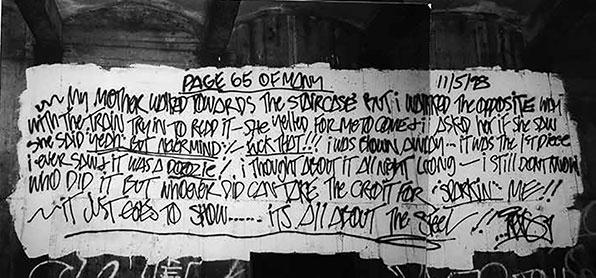 PAGE 65 OF MANY 11/5/93
~ MY MOTHER WALKED TOWARDS THE STAIRCASE BUT i WALKED THE OPPOSITE WAY
WITH THE TRAIN TRYIN TO READ IT - SHE YELLED FOR ME TO COME & i ASKED HER IF SHE SAW
SHE SAID YEAH! BUT NEVERMIND - FUCK THAT!!! i WAS BLOWN AWAY... IT WAS THE 1ST PIECE
i EVER SAW & IT WAS A DOOZIE! i THOUGHT ABOUT IT ALL NIGHT LONG - i STILL DONT KNOW
WHO DID IT BUT WHOEVER DID CAN TAKE THE CREDIT FOR "SPARKIN" ME!!
~ IT JUST GOES TO SHOW...... ITS ALL ABOUT THE STEEL!!